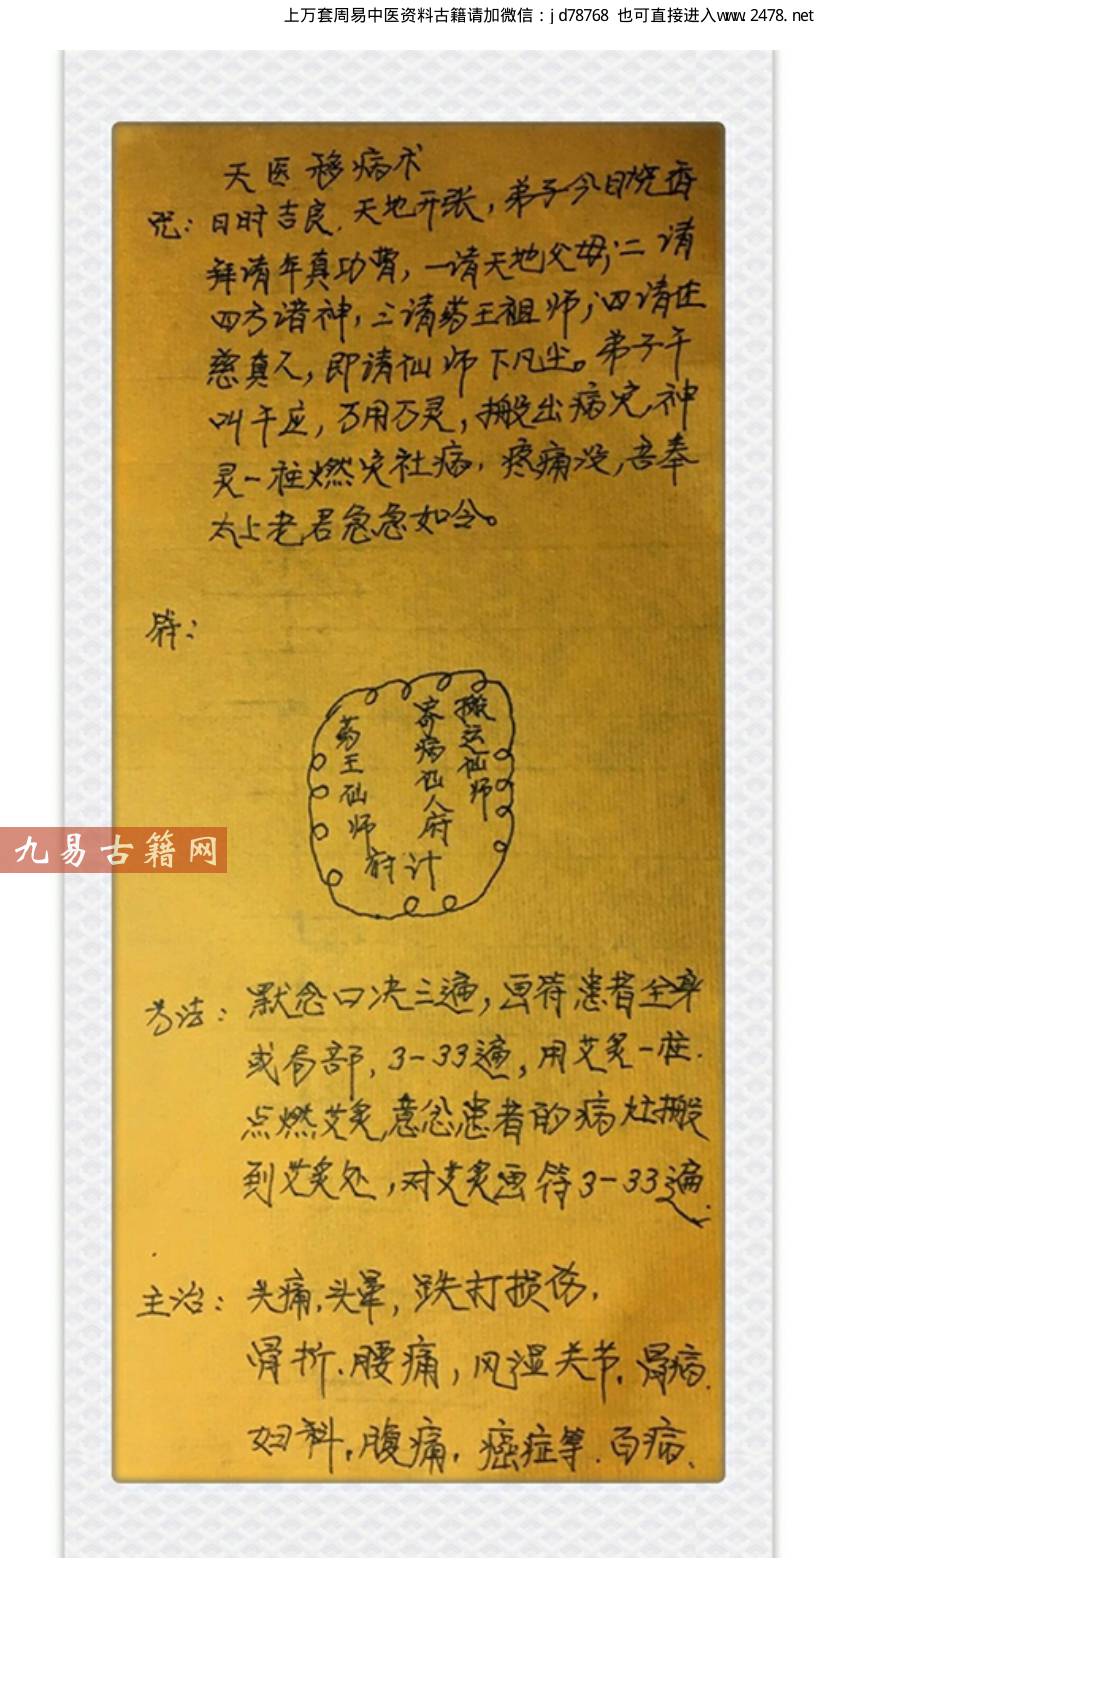 上万套周易中医资料古籍请加微信：jd78768 也可直接进入www.2478.net
天医移病术
咒：日时吉良，天地开张，弟子今日烧香
拜请年真功曹，一请天地父母；二请
四方诸神，三请药王祖师；四请
慈真人，即请仙师下凡尘。弟子千
叫千应，万用万灵，搬出病灾，神
灵一柱燃灾社病，疼痛没，吾奉
太上老君急急如令。
符：
搬运仙师
病仙人府
药王仙师
计
九易古籍网
方法：默念口决三遍，画符患者全身
或局部，3-33遍，用艾炙一柱.
点燃艾炙，意念患者的病灶搬
到艾炙处，对艾炙画符3-33遍.
主治：头痛，头晕，跌打损伤，
骨折、腰痛，风湿关节，胃病.
妇科，腹痛，癌症等.百病、